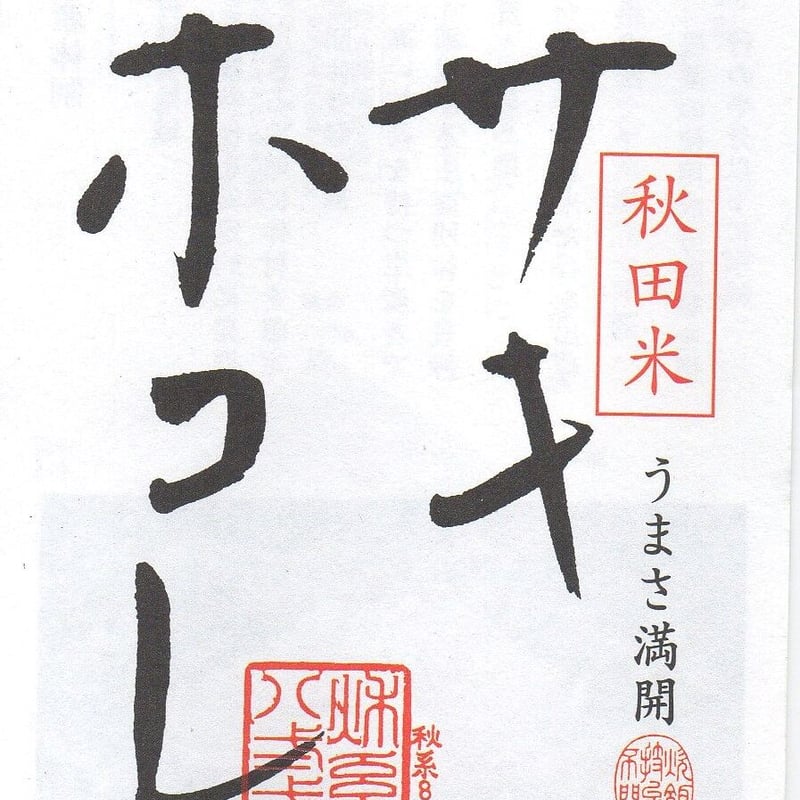 秋田米
うまさ満開
サキ
ホコレ
秋系8